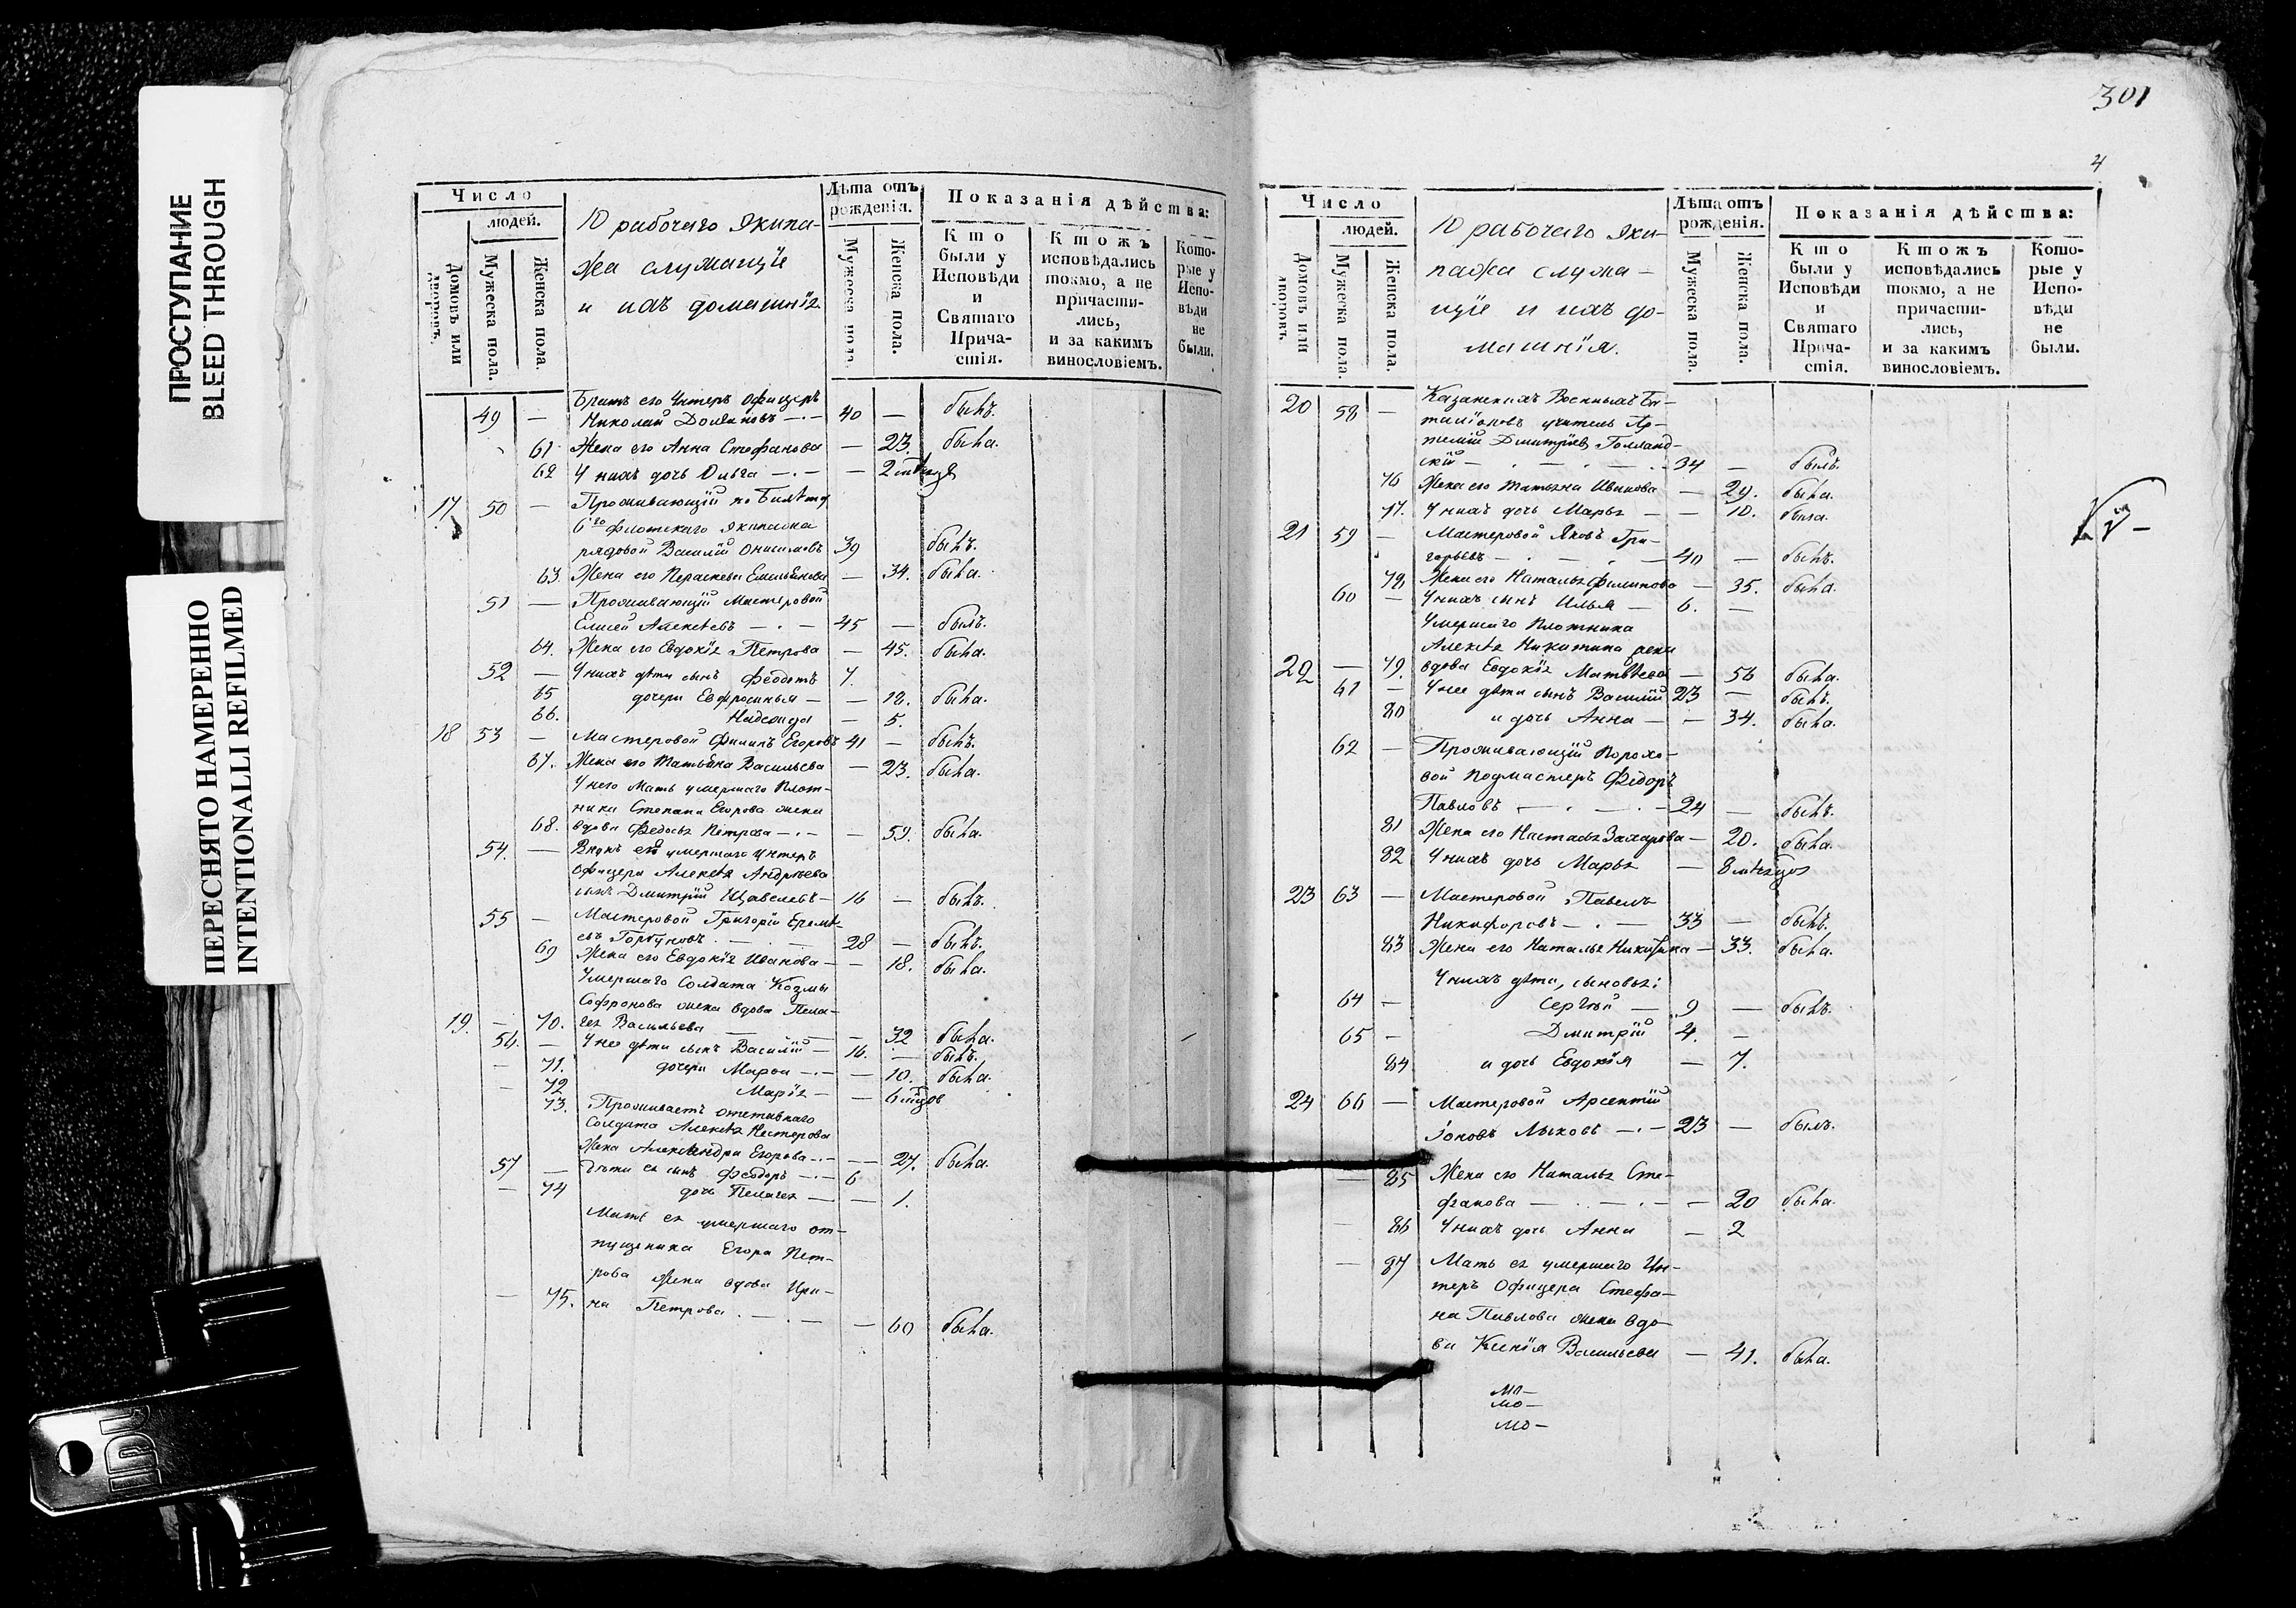 ПРОСТУПАНИЕ
BLEED THROUGH
ПЕРЕСНЯТО НАМЕРЕННО
INTENTIONALLI REFILMED
Число
людей.
Домовъ или дворовъ.
Мужеска пола.
Женска пола.
10 рабочаго Экипа-
жа служащіе
и ихъ домашнія
Лѣта отъ рожденія.
Мужеска пола.
Женска пола.
Показанія дѣйства:
Кто были у Исповѣди и Святаго Причастія.
Ктожъ исповѣдались токмо, а не причасти-лись, и за какимъ винословіемъ.
Кото-рые у Испо-вѣди не были.
Братъ его Унтеръ офицеръ
49 — Николай — 40 — былъ.
61. Жена его Анна Стефанова — 23. была.
62 У нихъ дочь Ольга — 2 мѣсяца
17. 50 — Проживающій по Билету
6го флотскаго Экипажа
рядовой Василій Онисимовъ 39 былъ.
63. Жена его Параскева Емельянова — 34. была.
51 — Проживающій Мастеровой
Елисей Алексѣевъ — 45 — былъ.
64. Жена его Евдокія Петрова — 45. была.
52 — У нихъ дѣти сынъ Феодотъ 7.
65 дочери Евфросинья — 12. была.
66. Надежда — 5.
18 53 — Мастеровой Филипъ Егоровъ 41 — былъ.
67. Жена его Татьяна Васильева — 23. была.
У него Мать умершаго Плот-
ника Степана Егорова жена
68. вдова Федосья Петрова — 59. была.
54. — Внукъ ея умершаго Унтеръ
офицера Алексѣя Андреева
сынъ Дмитрій Щавелевъ — 16 — былъ.
55 — Мастеровой Григорій Еремѣ-
евъ Горбуновъ — 28 — былъ.
69 Жена его Евдокія Иванова — 18. была.
Умершаго Солдата Козмы
Софронова жена вдова Пела-
19. — 70. гея Васильева — 32 была.
56. — У нее дѣти сынъ Василій — 16. — былъ.
— 71. дочери Марѳа — 10. была.
— 72 Марія — 6 мѣсцов
73. Проживаетъ отставнаго
Солдата Алексѣя Нестерова
Жена Александра Егорова — 27. была.
57 — Дѣти ея сынъ Феодоръ — 6
— 74 дочь Пелагея — 1.
Мать ея умершаго от-
пущеника Егора Пет-
рова жена вдова Ири-
— 75. на Петрова — 60 была.
301
4
Число
людей.
Домовъ или дворовъ.
Мужеска пола.
Женска пола.
10 рабочаго Эки-
пажа служа-
щіе и ихъ до-
машнія.
Лѣта отъ рожденія.
Мужеска пола.
Женска пола.
Показанія дѣйства:
Кто были у Исповѣди и Святаго Прича-стія.
Ктожъ исповѣдались токмо, а не причасти-лись, и за какимъ винословіемъ.
Кото-рые у Испо-вѣди не были.
20 58 — Казанскихъ Военныхъ Ба-
таліоновъ учитель Ар-
темій Дмитріевъ Голланд-
скій — 34 — былъ.
76 Жена его Татьяна Иванова — 29. была.
77. У нихъ дочь Марья — 10. была.
21 59 — Мастеровой Яковъ Гри-
горьевъ — 40 — былъ.
78. Жена его Наталья Филипова — 35. была.
60 — У нихъ сынъ Илья — 6. —
Умершаго Плотника
Алексѣя Никитина жена
22 — 79. вдова Евдокія Матвѣева — 56 была.
61 — У нее дѣти сынъ Василій 23 — былъ.
80 и дочь Анна — 34. была.
62 — Проживающій Порохо-
вой Подмастеръ Федоръ
Павловъ — 24 — былъ.
81 Жена его Настасья Захарова — 20. была.
82 У нихъ дочь Марья — 8 мѣсяцов
23 63 — Мастеровой Павелъ
Никифоровъ — 33 — былъ.
83 Жена его Наталья Никитина — 33. была.
У нихъ дѣти, сыновья:
64 — Сергѣй — 9 — былъ.
65 — Дмитрій 4. —
84 и дочь Евдокія — 7.
24 66 — Мастеровой Арсентій
Іоновъ Лыковъ — 23 — былъ.
— 85 Жена его Наталья Сте-
фанова — 20 была.
— 86 У нихъ дочь Анна — 2
— 87 Мать ея умершаго Ун-
теръ Офицера Стефа-
на Павлова жена вдо-
ва Ксенія Васильева — 41. была.
мо-
мо-
мо-